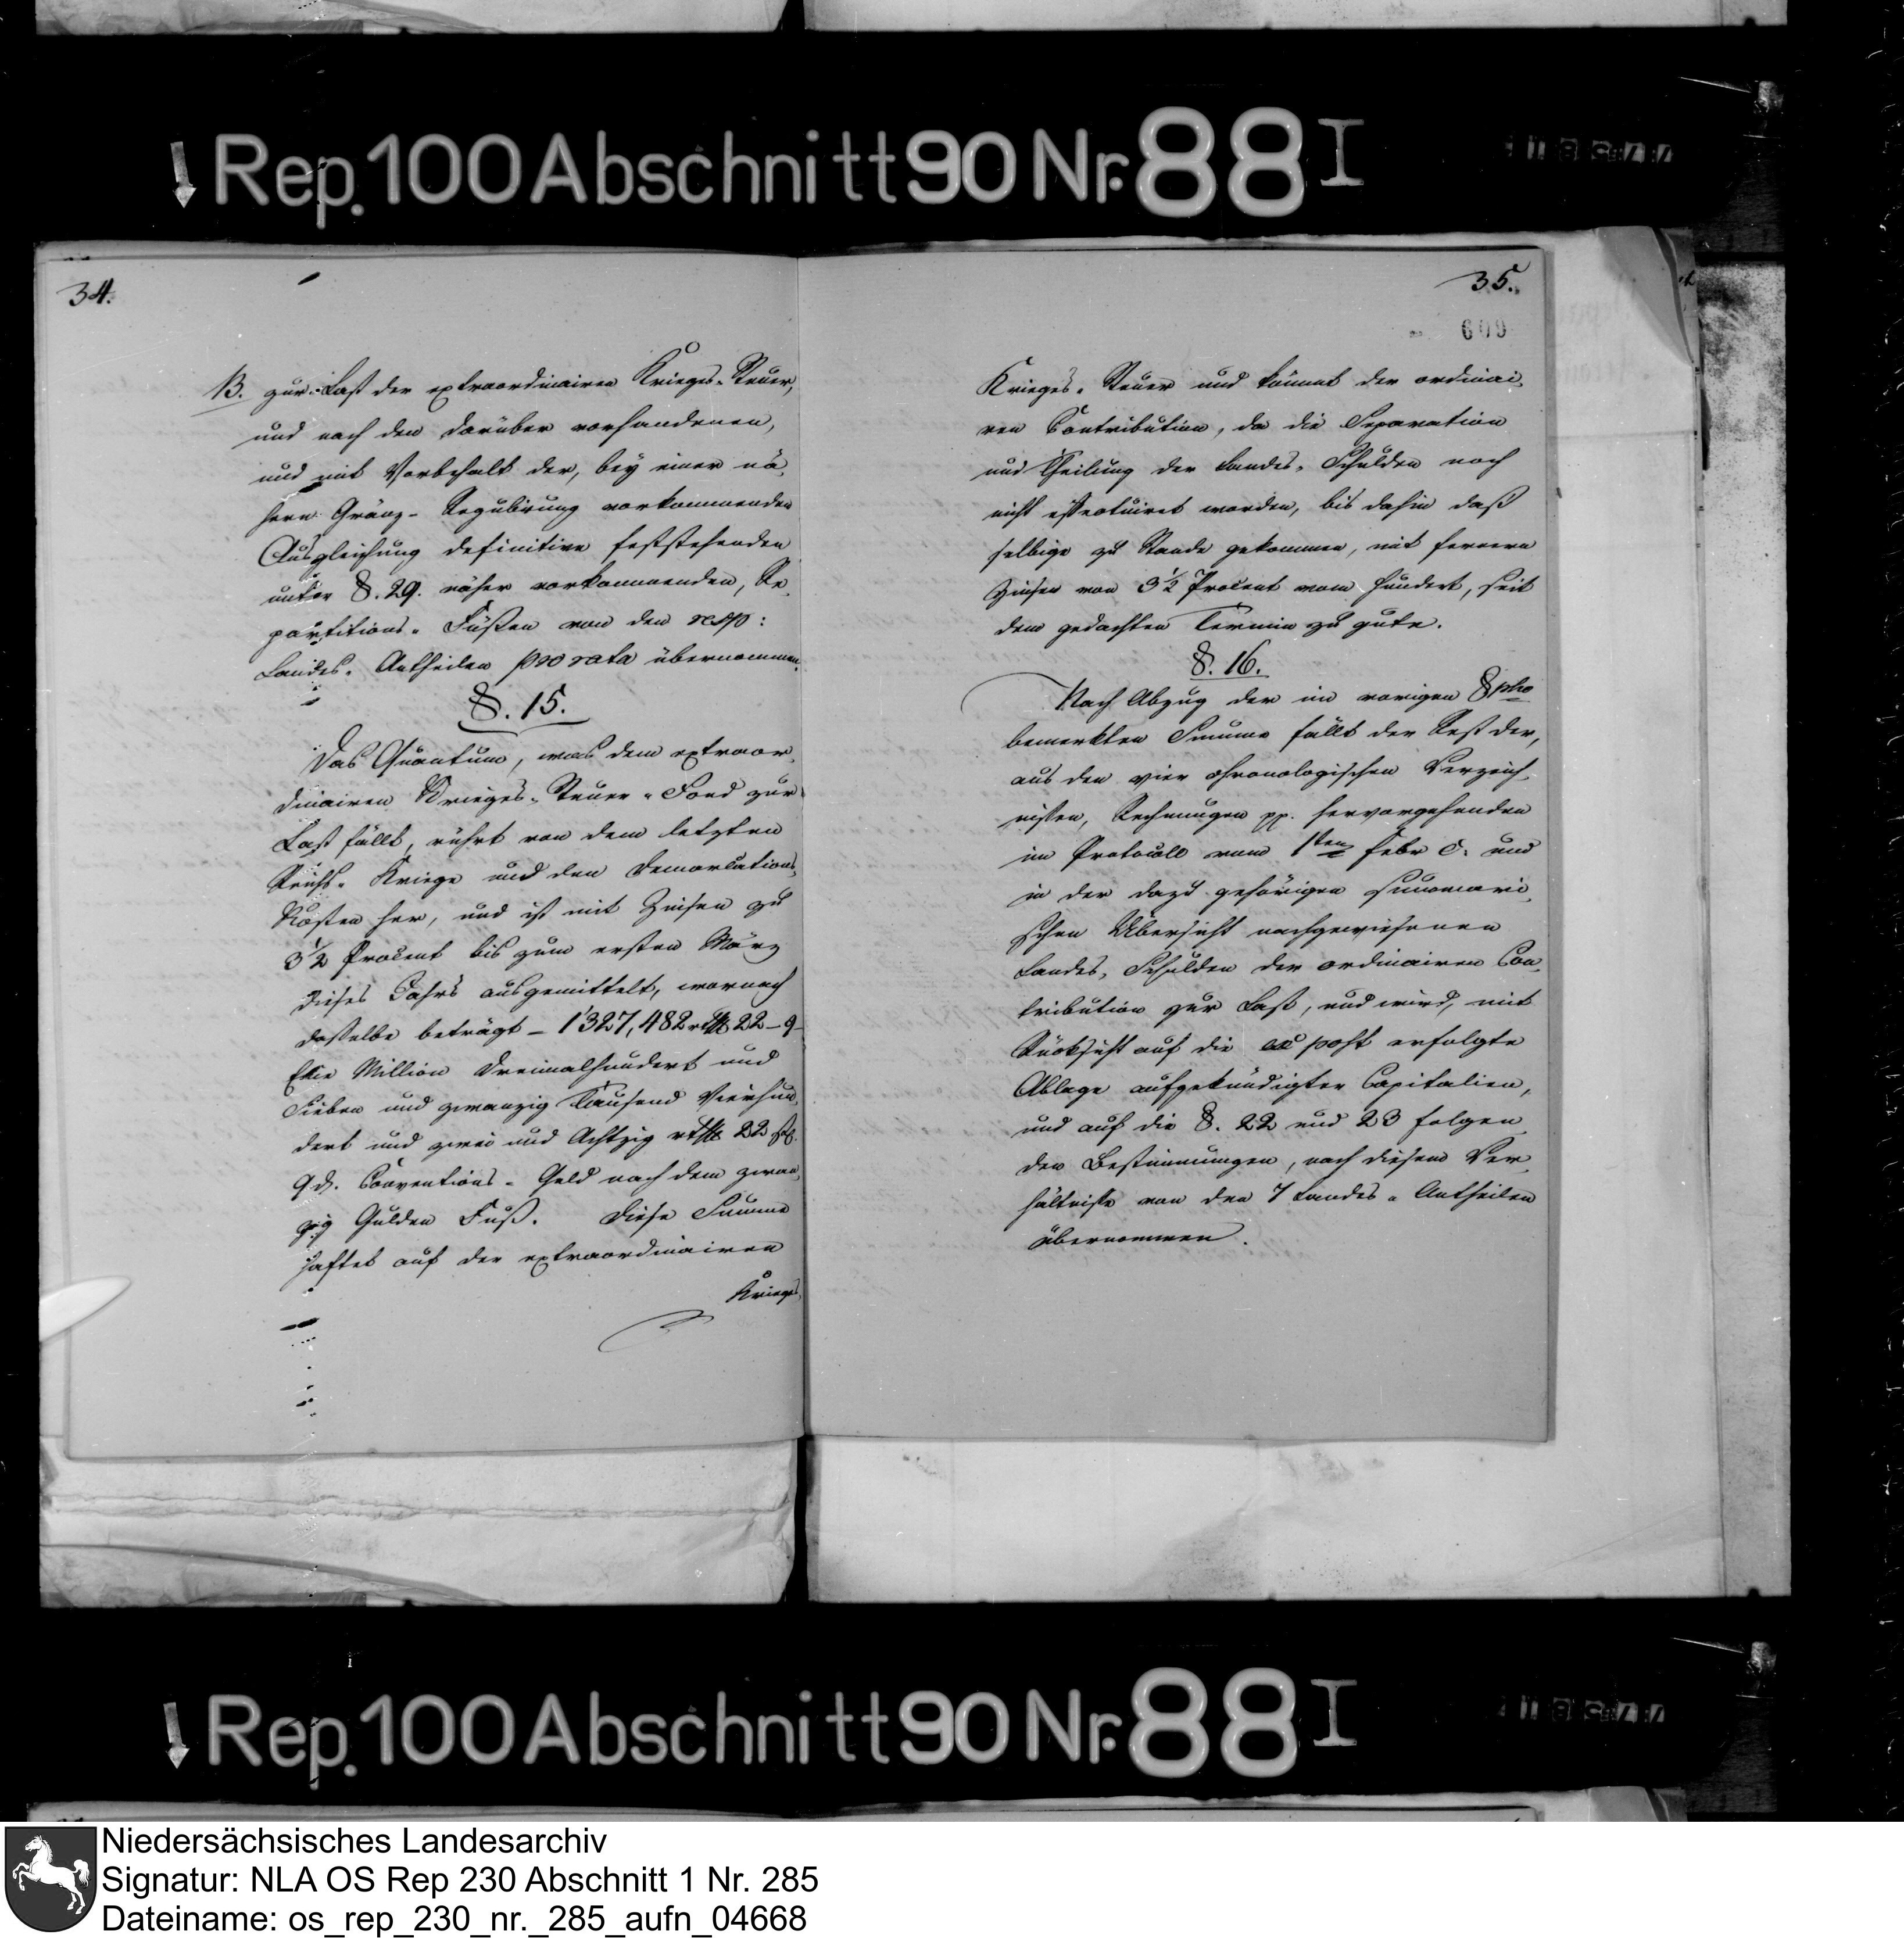 ↓ Rep. 100 Abschnitt 90 Nr. 88 I
34.
B. zur Last der extraordinairen Krieges-Steuer,
und nach den darüber vorhandenen,
und mit Vorbehalt der, bey einer nä-
hern Gränz-Regulirung vorkommenden
Ausgleichung definitive feststehenden
unter §. 29. näher vorkommenden, Re-
partitions-Füßen von den resp:
Landes-Antheilen pro rata übernommen.
§. 15.
Das Quantum, was dem extraor-
dinairen Krieges-Steuer-Fond zur
Last fällt, rührt von dem letzten
Reichs-Kriege und den Demarcations-
Kosten her, und ist mit Zinsen zu
3½ Procent bis zum ersten März
dieses Jahrs ausgemittelt, wornach
dasselbe beträgt – 1327,482 rthlr 22 – 9
Eine Million Dreimalhundert und
Sieben und zwanzig Tausend Vierhun-
dert und zwei und Achtzig rthlr 22 ßl.
9 d. Conventions-Geld nach dem zwan-
zig Gulden Fuß. Diese Summe
haftet auf der extraordinairen
Krieges-
35.
609
Krieges-Steuer und kömmt der ordinai-
ren Contribution, da die Separation
und Theilung der Landes-Schulden noch
nicht effectuiret worden, bis dahin daß
selbige zu Stande gekommen, mit fernern
Zinsen von 3½ Procent vom Hundert, seit
dem gedachten Termin zu gute.
§. 16.
Nach Abzug der im vorigen §pho
bemerkten Summe fällt der Rest der,
aus den vier chronologischen Verzeich-
nissen, Rechnungen pp. hervorgehenden
im Protocoll vom 1ten Febr c. und
in der dazu gehörigen summari-
schen Übersicht nachgewiesenen
Landes-Schulden der ordinairen Con-
tribution zur Last, und wird, mit
Rücksicht auf die ex post erfolgte
Ablage aufgekündigter Capitalien,
und auf die §. 22 und 23 folgen-
den Bestimmungen, nach diesem Ver-
hältnisse von den 7 Landes-Antheilen
übernommen.
↓ Rep. 100 Abschnitt 90 Nr. 88 I
Niedersächsisches Landesarchiv
Signatur: NLA OS Rep 230 Abschnitt 1 Nr. 285
Dateiname: os_rep_230_nr._285_aufn_04668